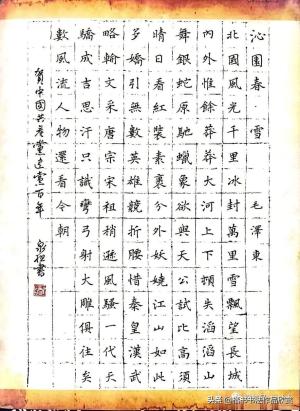 沁園春 雪 毛澤東
北國風光千里冰封萬里雪飄望長城
內外惟餘莽莽大河上下頓失滔滔山
舞銀蛇原馳蠟象欲與天公試比高須
晴日看紅裝素裹分外妖嬈江山如此
多嬌引無數英雄競折腰惜秦皇漢武
略輸文采唐宗宋祖稍遜風騷一代天
驕成吉思汗只識彎弓射大雕俱往矣
數風流人物還看今朝
賀中國共產黨建黨百年
書
头条 @楷书书法作品欣赏